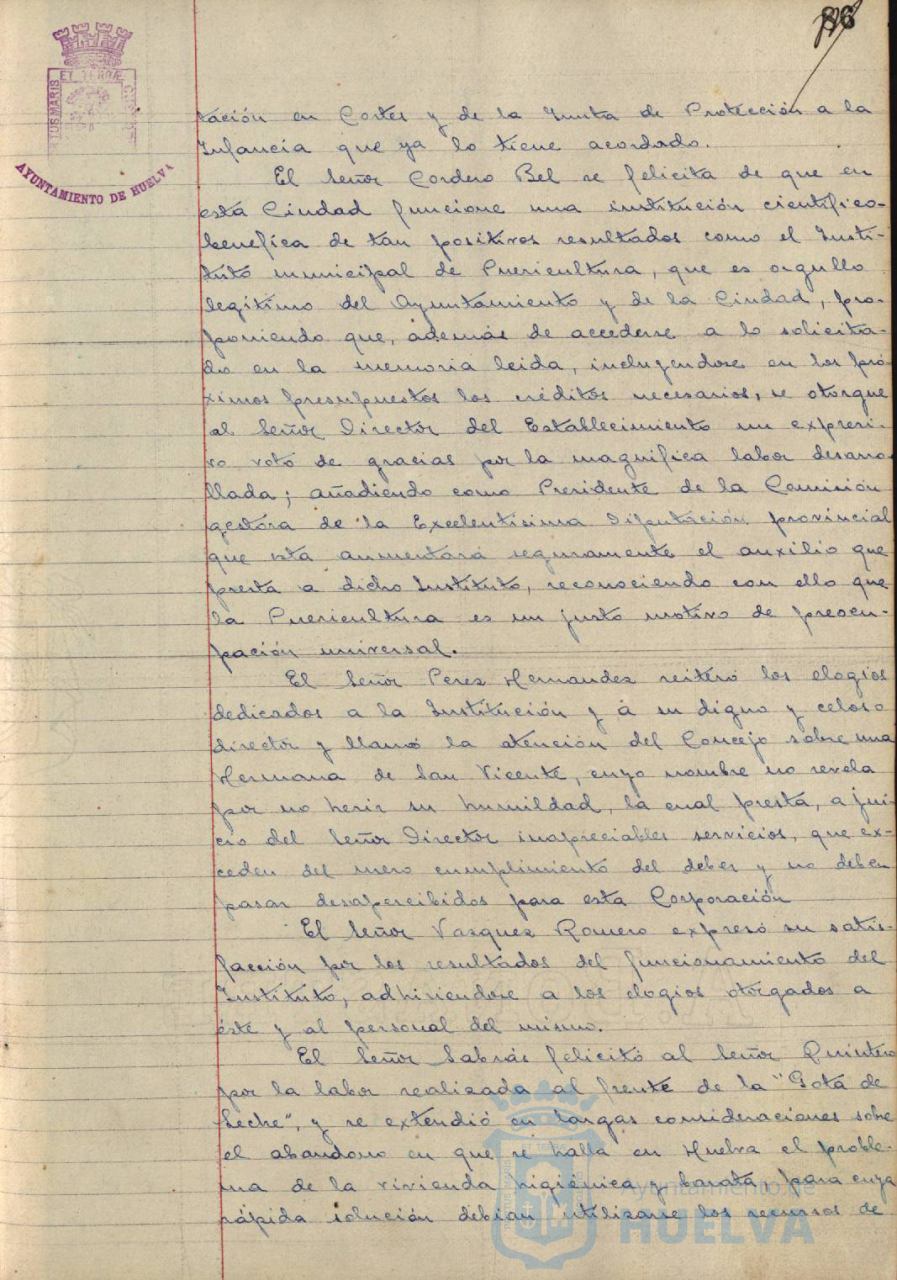 86
ET TERRAE
PORTUS MARIS
AYUNTAMIENTO DE HUELVA
tación en Cortes y de la Junta de Protección a la
Infancia que ya lo tiene acordado.
El Señor Cordero Bel se felicita de que en
está Ciudad funcione una institución científico-
benefica de tan positivos resultados como el Insti-
tuto municipal de Puericultura, que es orgullo
legítimo del Ayuntamiento y de la Ciudad, pro-
poniendo que, además de accederse a lo solicita-
do en la memoria leida, incluyendose en los pró-
ximos presupuestos los créditos necesarios, se otorgue
al Señor Director del Establecimiento un expresi-
vo voto de gracias por la magnífica labor desarro-
llada; añadiendo como Presidente de la Comisión
gestora de la Excelentísima Diputación provincial
que esta aumentará seguramente el auxilio que
presta a dicho Instituto, reconociendo con ello que
la Puericultura es un justo motivo de preocu-
pación universal.
El Señor Perez Hernandez reiteró los elogios
dedicados a la Institución y á su digno y celoso
director y llamó la atención del Concejo sobre una
Hermana de San Vicente, cuyo nombre no revela
por no herir su humildad, la cual presta, a jui-
cio del Señor Director inapreciables servicios, que ex-
ceden del mero cumplimiento del deber y no deben
pasar desapercibidos para esta Corporación
El Señor Vazquez Romero expresó su satis-
facción por los resultados del funcionamiento del
Instituto, adhiriendose a los elogios otorgados a
éste y al personal del mismo.
El Señor Sabrás felicitó al Señor Quintero
por la labor realizada al frente de la "Gota de
Leche", y se extendió en largas consideraciones sobre
el abandono en que se halla en Huelva el proble-
ma de la vivienda higiénica y barata, para cuya
rápida solución debian utilizarse los recursos de
Ayuntamiento de
HUELVA